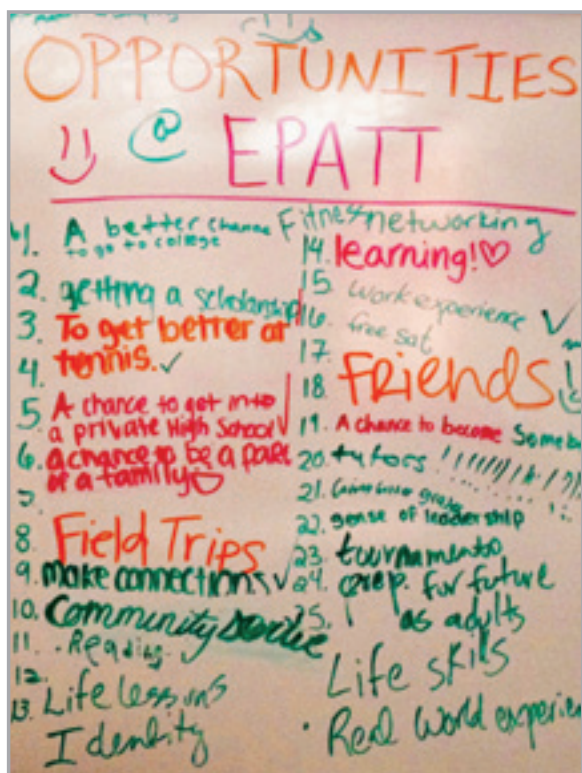 OPPORTUNITIES
@ EPATT
1. A better chance
to go to college
2. getting a scholarship
3. To get better at
4. tennis. ✓
5. A chance to get into
a private High School
6. a chance to be a part
of a family
7.
8. Field Trips
9. make connections ✓
10. Community
11. Reading
12.
13. Life lessons
Identity
Fitness networking
14. learning! ♡
15. work experience ✓
16. free sat
17.
18. Friends
19. A chance to become
20. tutors
21.
22. sense of leadership
23. tournaments
24. prep. for future
25. as adults
Life skills
• Real World